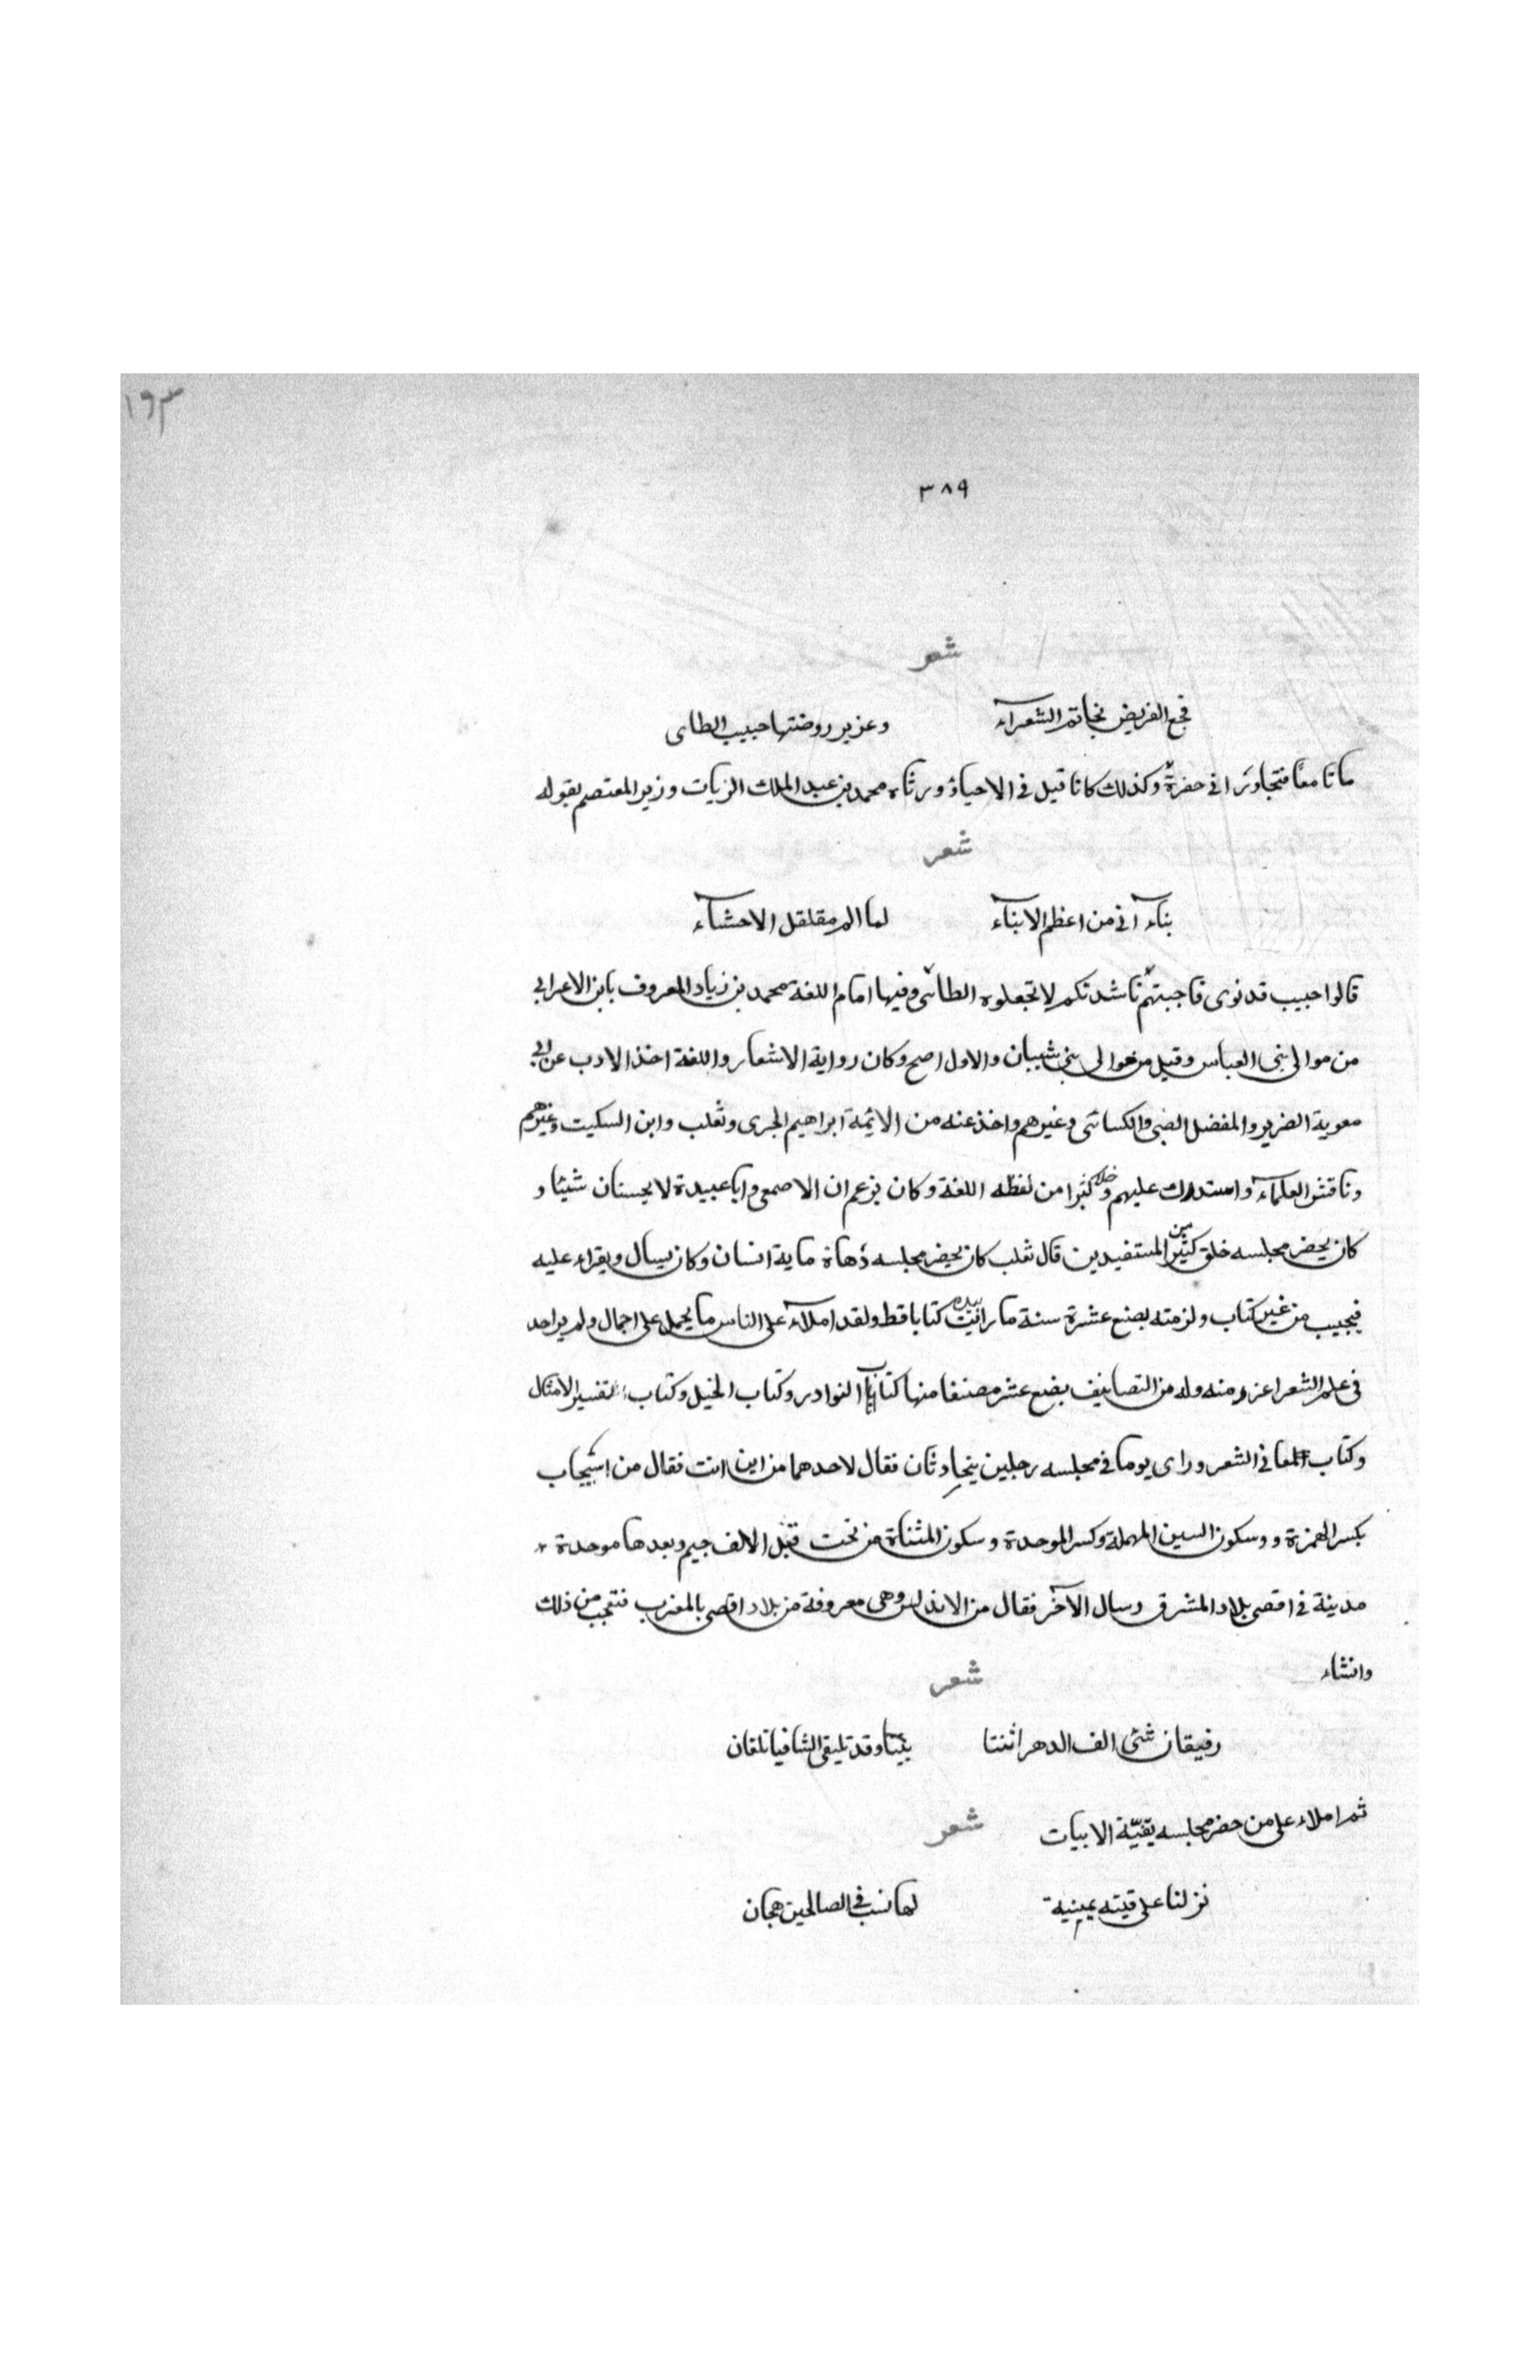 ١٩٣
٣٨٩
شعر
فجع القريض بخاتم الشعرآء وعزير روضتها حبيب الطاى
ماتا معًا فتجاورا فى حفرة وكذلك كانا قيل فى الاحياؤ ورثاه محمد بن عبد الملك الزيات وزير المعتصم بقوله
شعر
بناء اتى من اعظم الابناء لما الم مقلقل الاحشآء
قالوا حبيب قد نوى فاجبتهم ناشدتكم لا تجعلوه الطائى وفيها امام اللغة محمد بن زياد المعروف بابن الاعرابى
من موالى بنى العباس وقيل من موالى بنى شيبان والاول اصح وكان رواية الاشعار واللغة اخذ الادب عن ابى
معوية الضرير والمفضل الضبى والكسائى وغيرهم واخذ عنه من الائمة ابراهيم الجرى وثعلب وابن السكيت وغيرهم
وناقش العلمآء واستدرك عليهم وخلا كثيرا من لفظه اللغة وكان يزعم ان الاصمعى وابا عبيدة لا يحسنان شيئا و
كان يحضر مجلسه خلق كثير من المستفيدين قال ثعلب كان يحضر مجلسه زهاة ماية انسان وكان يسال ويقراء عليه
فيجيب من غير كتاب ولزمته بضع عشرة سنة ما رايت بيده كتابا قط ولقد املآء على الناس ما يحمل على اجمال ولم ير احد
فى علم الشعر اعزر منه وله من التصانيف بضع عشر مصنفا منها كتاب النوادر وكتاب الخيل وكتاب تفسير الامثال
وكتاب المعانى الشعر وراى يوما فى مجلسه رجلين يتحادثان فقال لاحدهما من اين انت فقال من اسبيجاب
بكسر الهمزة و وسكون السين المهملة وكسر الموحدة وسكون المثناة من تحت قبل الالف جيم وبعدها موحدة
مدينة فى اقصى بلاد المشرق وسال الآخر فقال من الاندلس وهى معروفة من بلاد اقصى بالمغرب فتعجب من ذلك
وانشاء
شعر
رفيقان شتى الف الدهر اثنتا بيننا وقد تليقى الشافيا تلقان
ثم املاء على من حضر مجلسه بقيّة الابيات شعر
نزلنا على قيته يمينية لها نسب فى الصالحين هجان